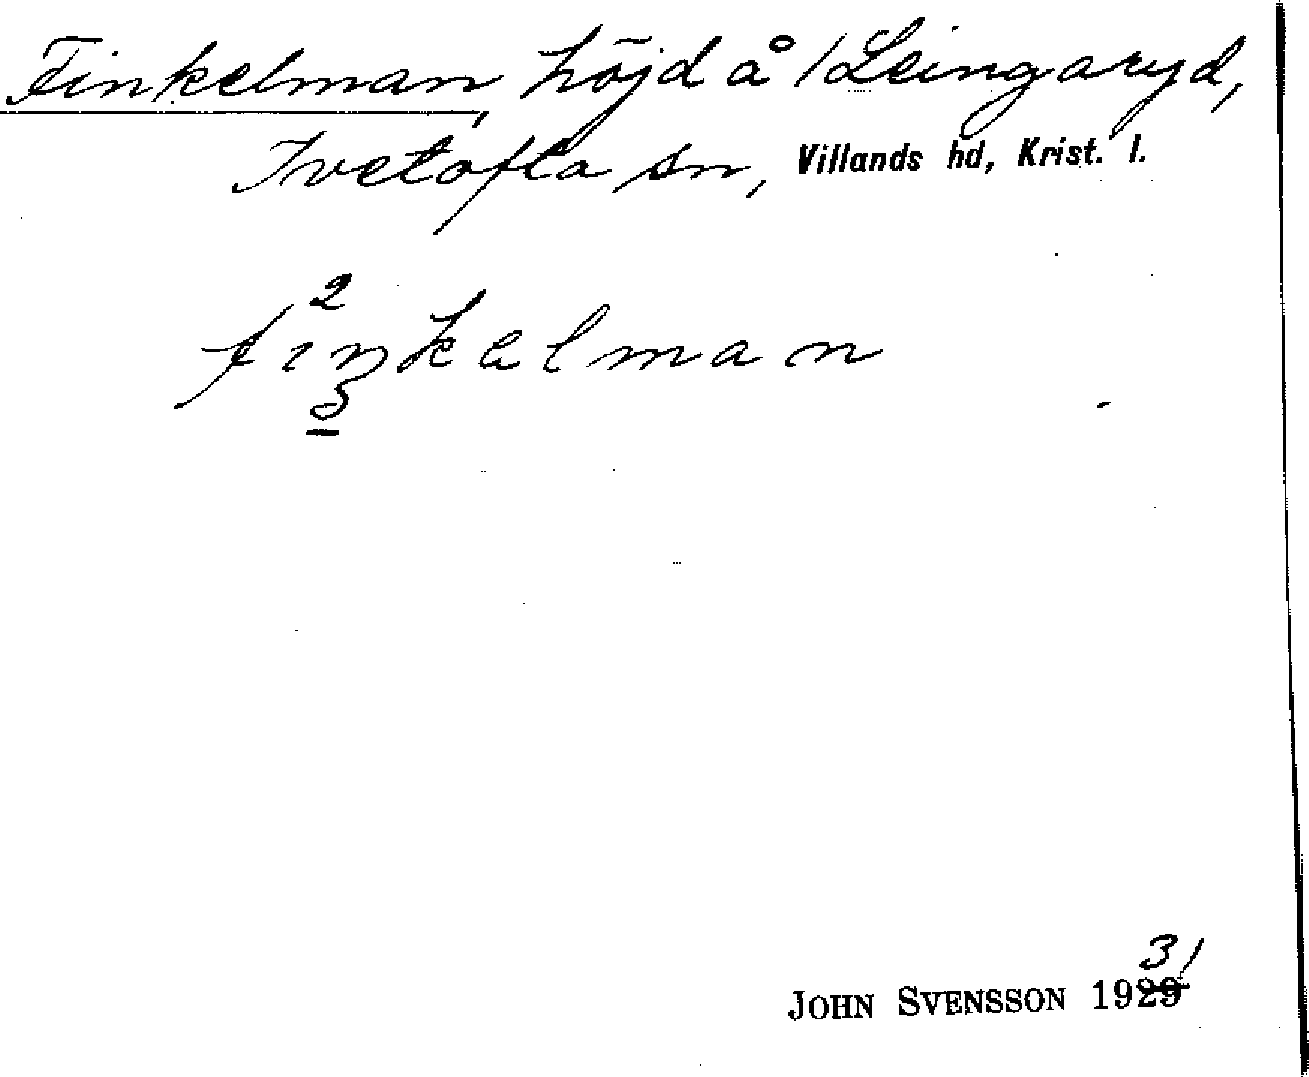 Finkelman, höjd å /Leingaryd,
Ivetofta sn, Villands hd, Krist. l.
2
fiŋkelman
3
31
JOHN SVENSSON 1929